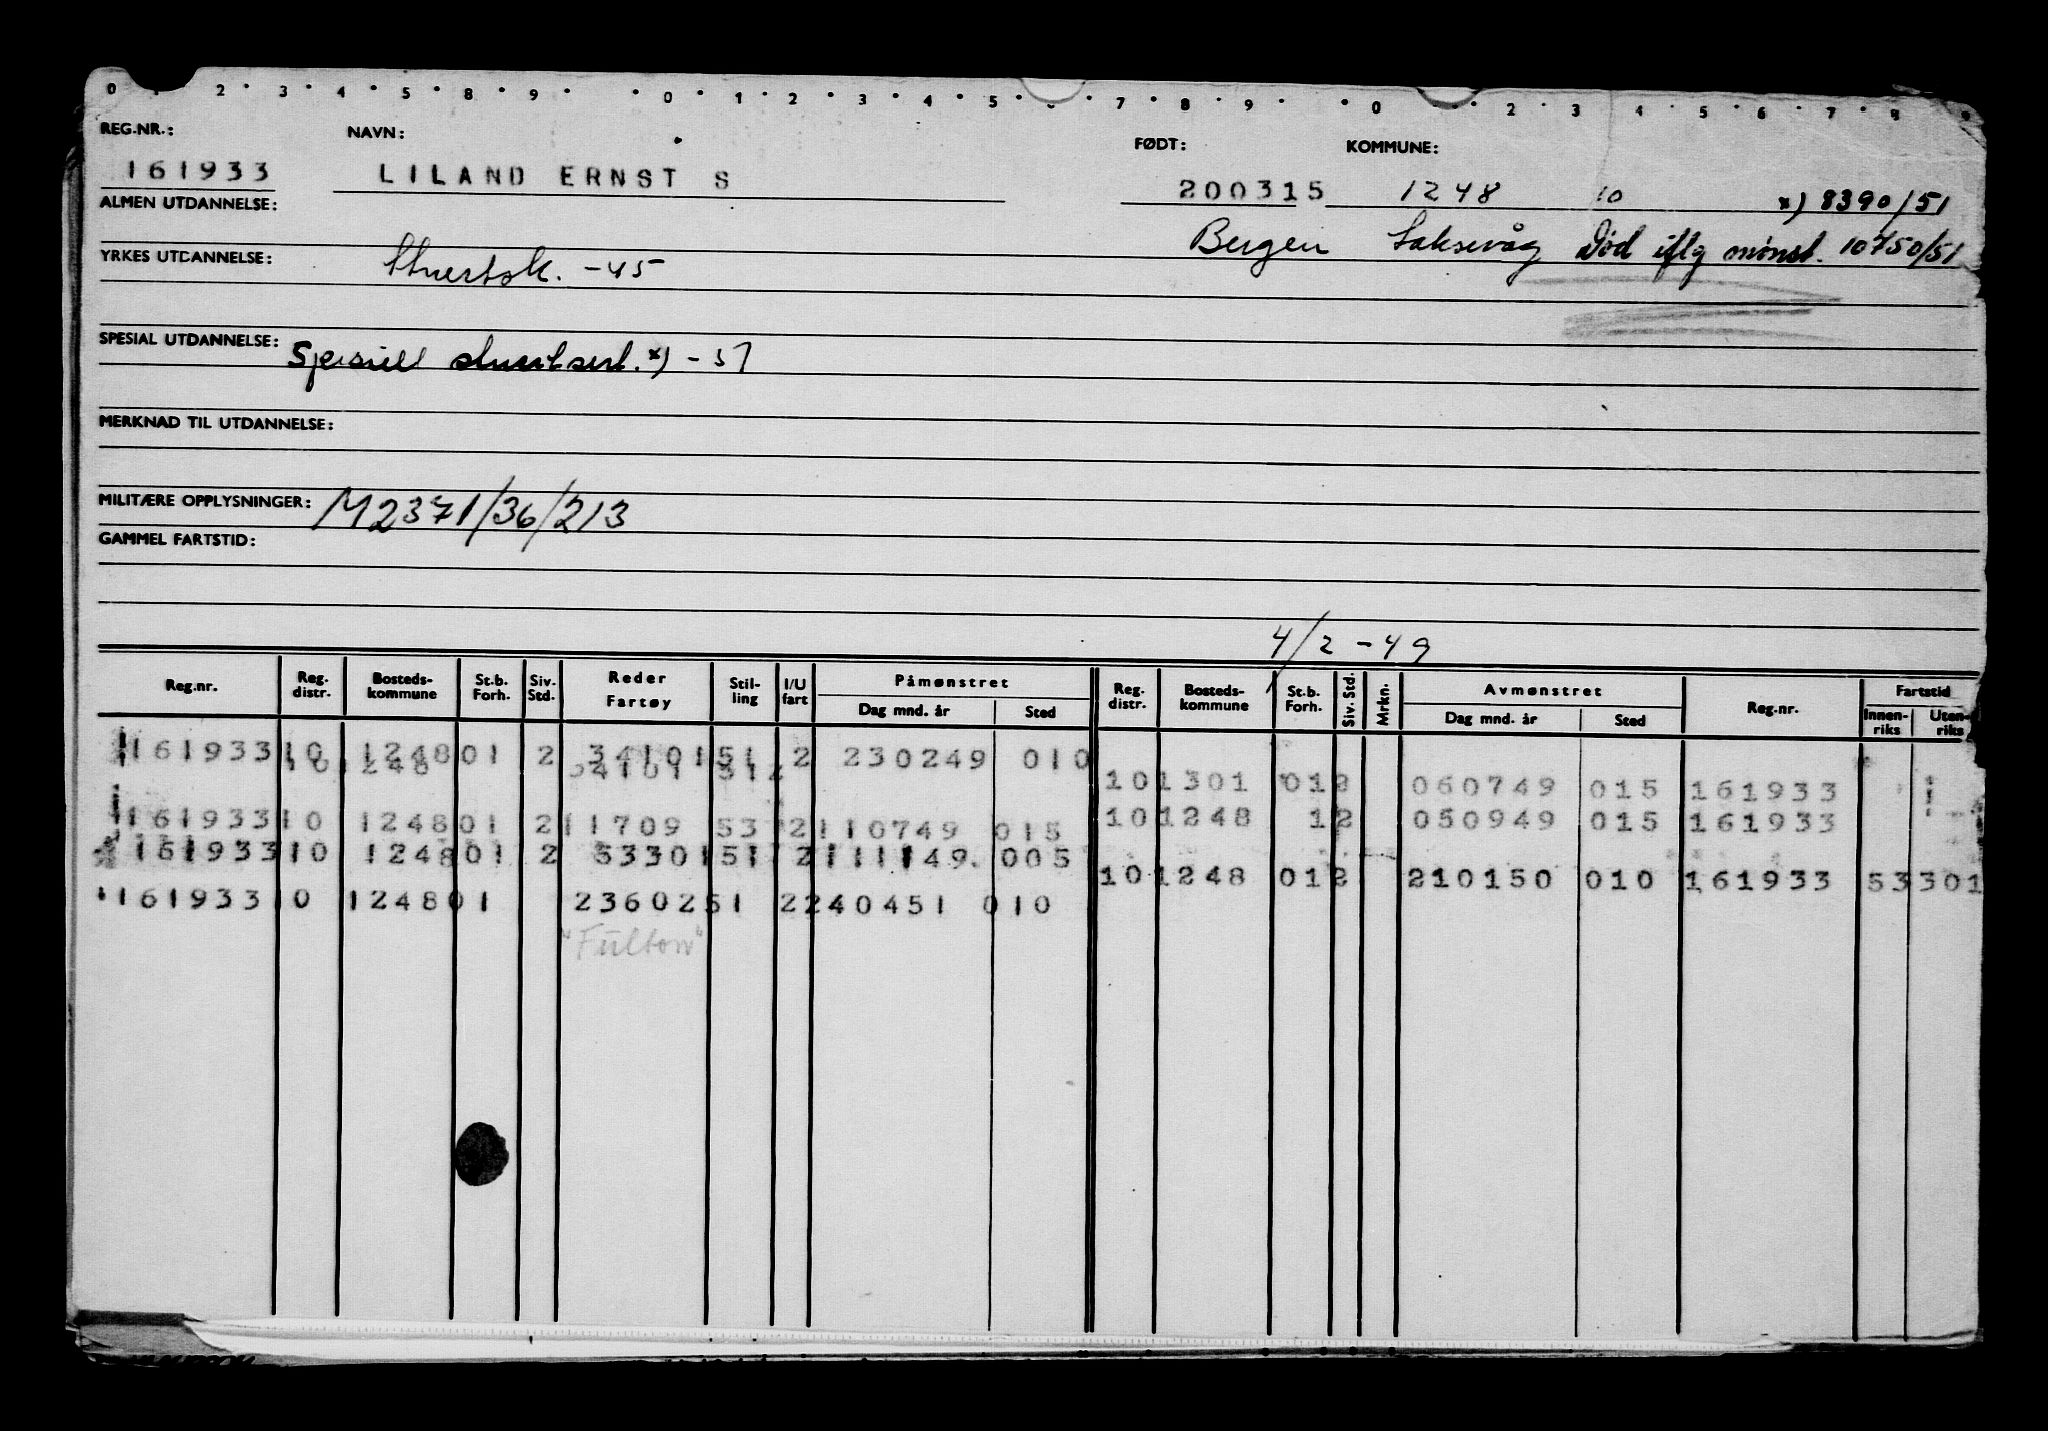 0 2 3 4 5 8 9 0 1 2 3 4 5 7 8 9 0 2 3 4 5 6 7 8
REG.NR.: NAVN: FØDT: KOMMUNE:
161933 LILAND ERNST S 200315 1248 10 x) 8390/51
ALMEN UTDANNELSE:
Bergen Laksevåg Død iflg mønst. 10450/51
YRKES UTDANNELSE: Stuertsk. -45
SPESIAL UTDANNELSE: Spesiell stuertsert. x) -51
MERKNAD TIL UTDANNELSE:
MILITÆRE OPPLYSNINGER: M2371/36/213
GAMMEL FARTSTID:
4/2-49
Reg.nr. Reg. distr. Bosteds-kommune St.b. Forh. Siv. Std. Reder Fartøy Stil-ling I/U fart Påmønstret Dag mnd. år Sted Reg. distr. Bosteds-kommune St.b. Forh. Siv. Std. Mrkn. Avmønstret Dag mnd. år Sted Reg.nr. Fartstid Innen-riks Uten-riks
161933 10 1248 01 2 34101 51 2 230249 010
101301 012 060749 015 161933
161933 10 1248 01 2 11709 53 2 110749 015
101248 12 050949 015 161933
161933 10 1248 01 2 53301 51 2 111149. 005
101248 012 210150 010 161933 53301
161933 10 1248 01 23602 51 2 240451 010
"Fulton"